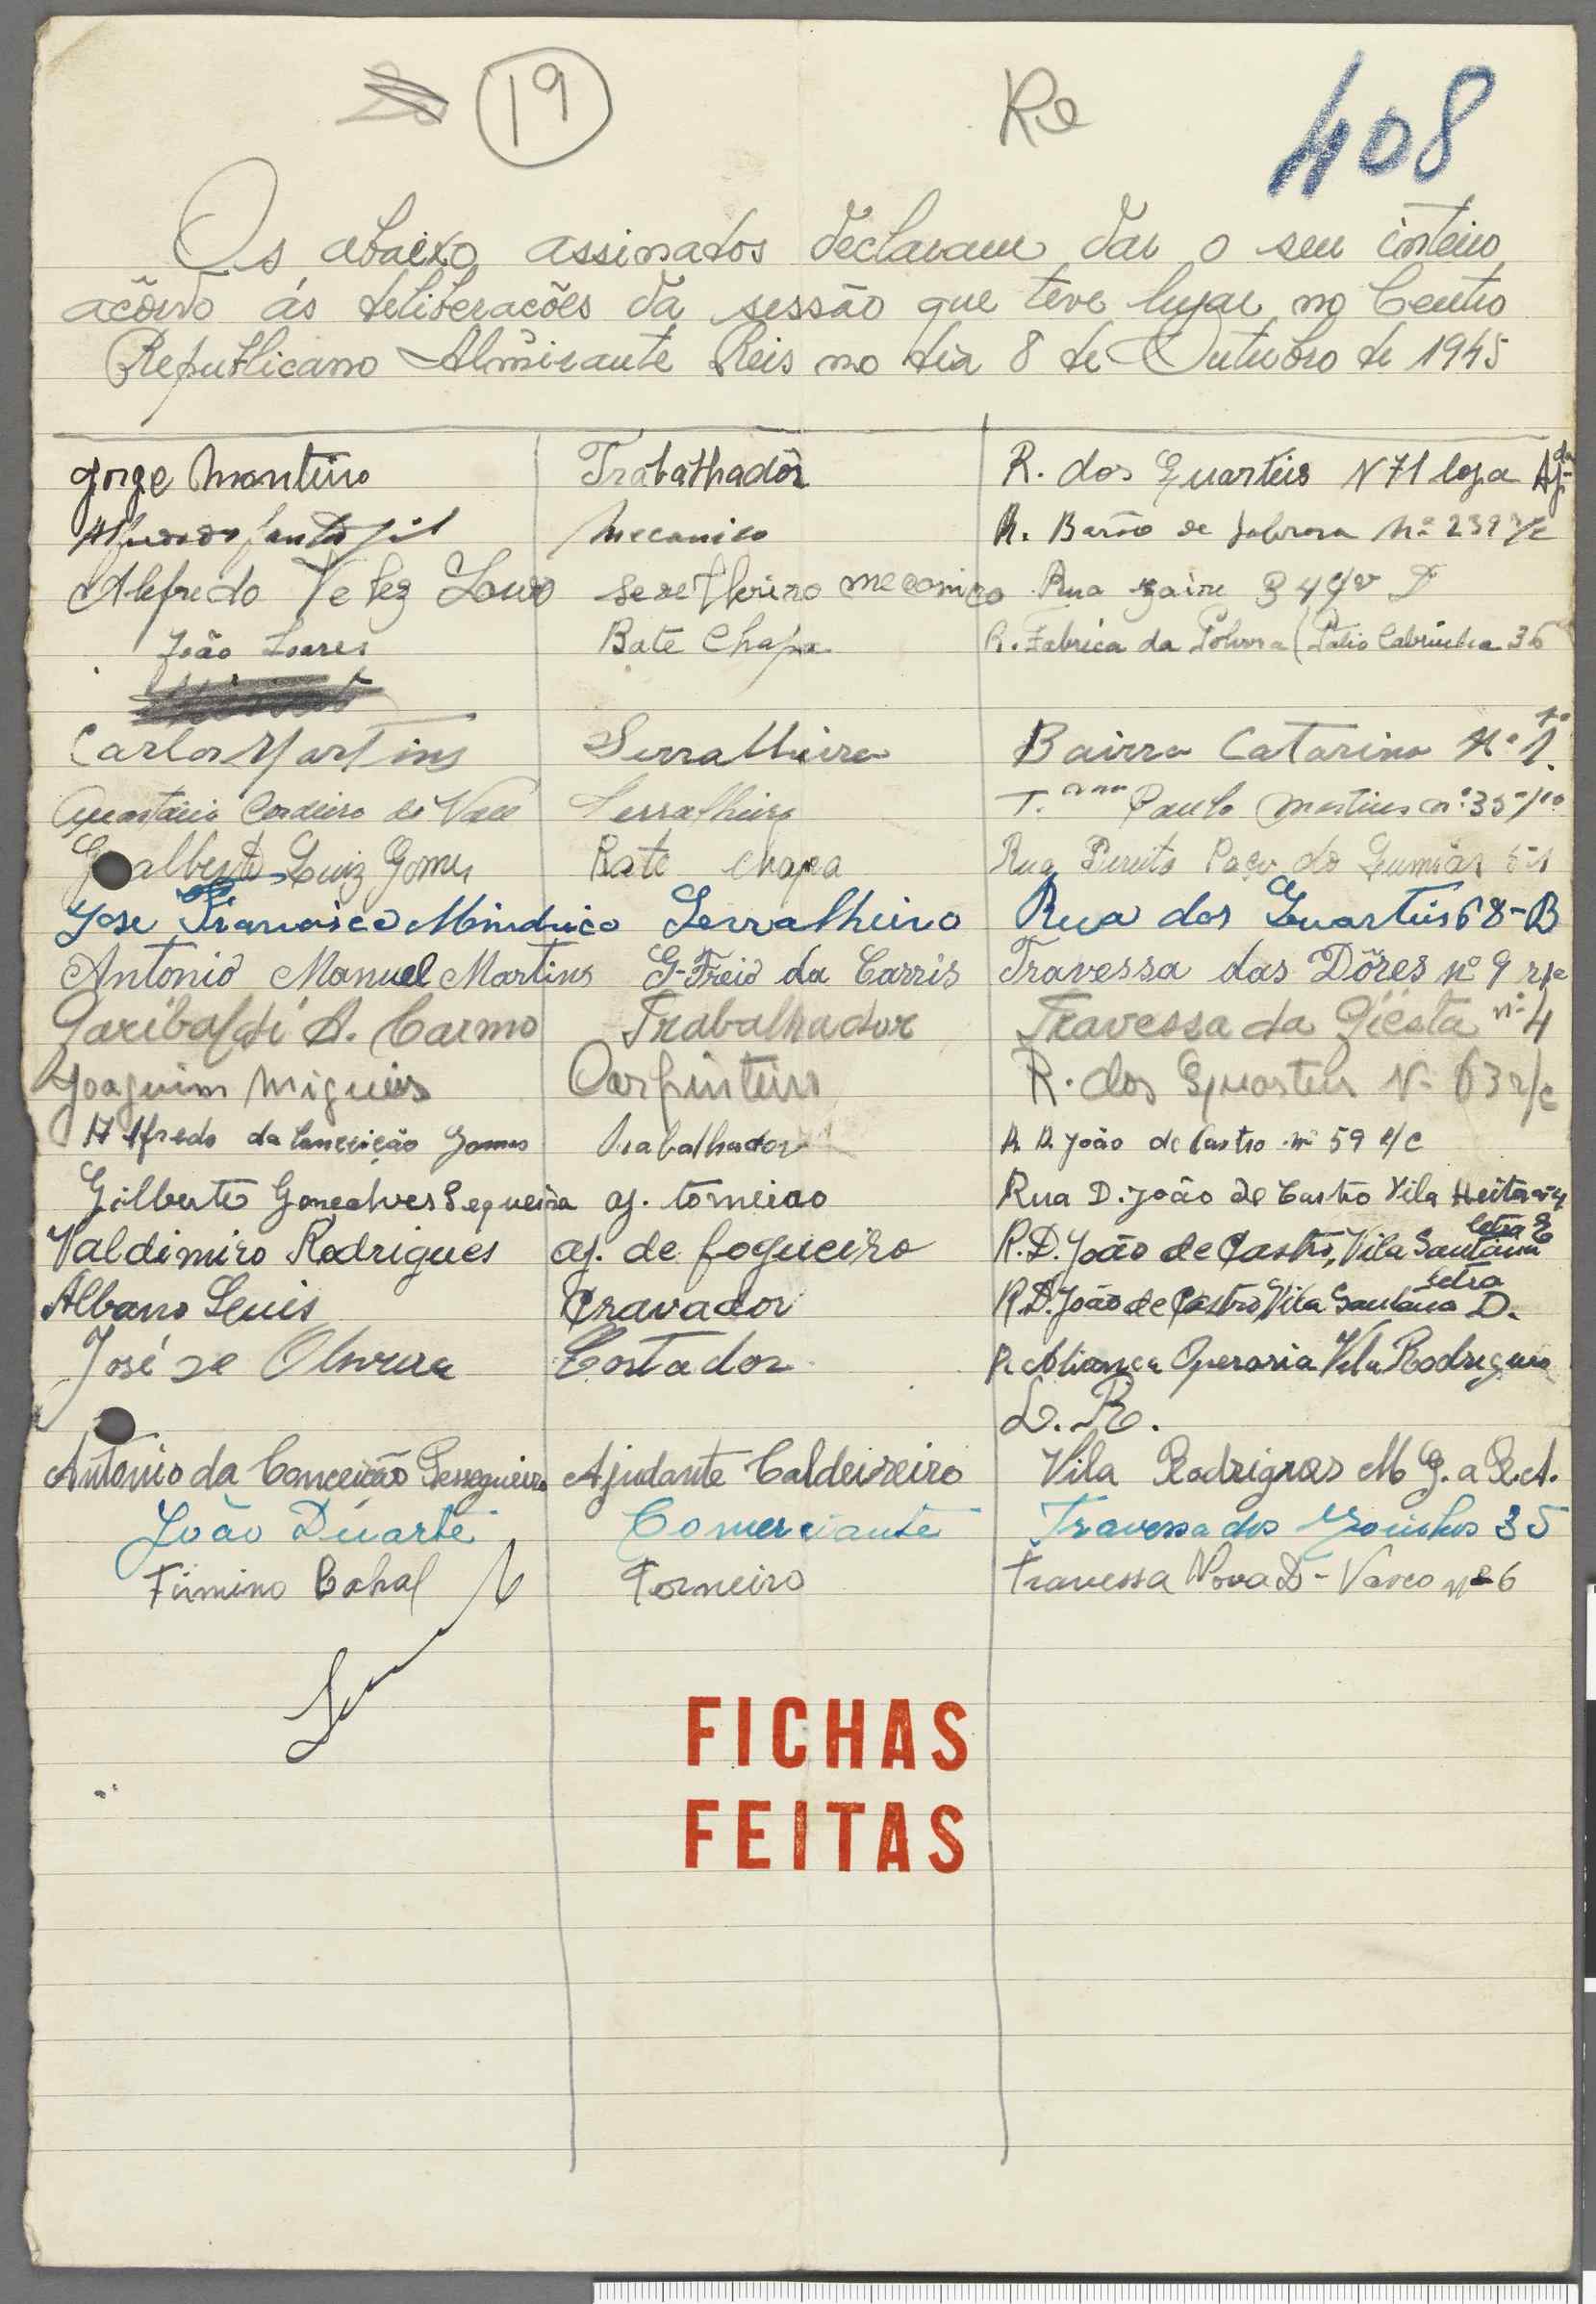 19 Re 408
Os abaixo assinados declaram dar o seu inteiro
acôrdo ás deliberacões da sessão que teve lugar no Centro
Republicano Almirante Reis no dia 8 de Outubro de 1945
Jorge Monteiro Trabalhadôr R. dos Quarteis N 71 loja Ajuda
Alfredo Santos Gil Mecanico R. Barão de Sabrosa Nº 239 r/c
Alefredo Velez Louro mecanico Rua Zaire 34
João Soares Bate Chapa R. Fabrica da Polvora (Pátio Cabrinha 36
Carlos Martins Serralheiro Bairro Catarino Nº 1
Cordeiro do Vale Serralheiro T. Paulo Martins nº 35
Gualberto Luiz Gomes Bate chapa Rua Direita Paço do Lumiar
Jose Francisco Mindrico Serralheiro Rua dos Quarteis 68-B
Antonio Manuel Martins G-Freio da Carris Travessa das Dôres nº 9 r/c
Garibaldi A. Carmo Trabalhador Travessa da Giesta nº 4
Joaquim Migueis Carpinteiro R. dos Quarteis N- 63 r/c
Alfredo da Conceição Gomes Trabalhador R. D. João de Castro nº 59 r/c
Gilberto Gonçalves Sequeira aj. torneiro Rua D. João de Castro Vila Heitor nº 4
Valdimiro Rodrigues aj. de fogueiro R. D. João de Castro, Vila Santana letra E
Albano Luis Cravador R. D. João de Castro Vila Santana letra D.
José de Oliveira Cortador R. Aliança Operaria Vila Rodrigues
L. R.
Antonio da Conceição Ajudante Caldeireiro Vila Rodrigues M G. a R. A.
João Duarte Comerciante Travessa dos Moinhos 35
Firmino Cabral Torneiro Travessa Nova D- Vasco nº 6
FICHAS
FEITAS